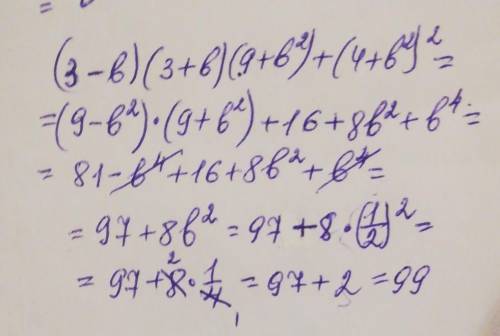 (3-b)(3+b)(9+b²)+(4+b²)²=
=(9-b²)·(9+b²)+16+8b²+b⁴=
=81-b⁴+16+8b²+b⁴=
=97+8b²=97+8·(1/2)²=
=97+8·1/4=97+2=99